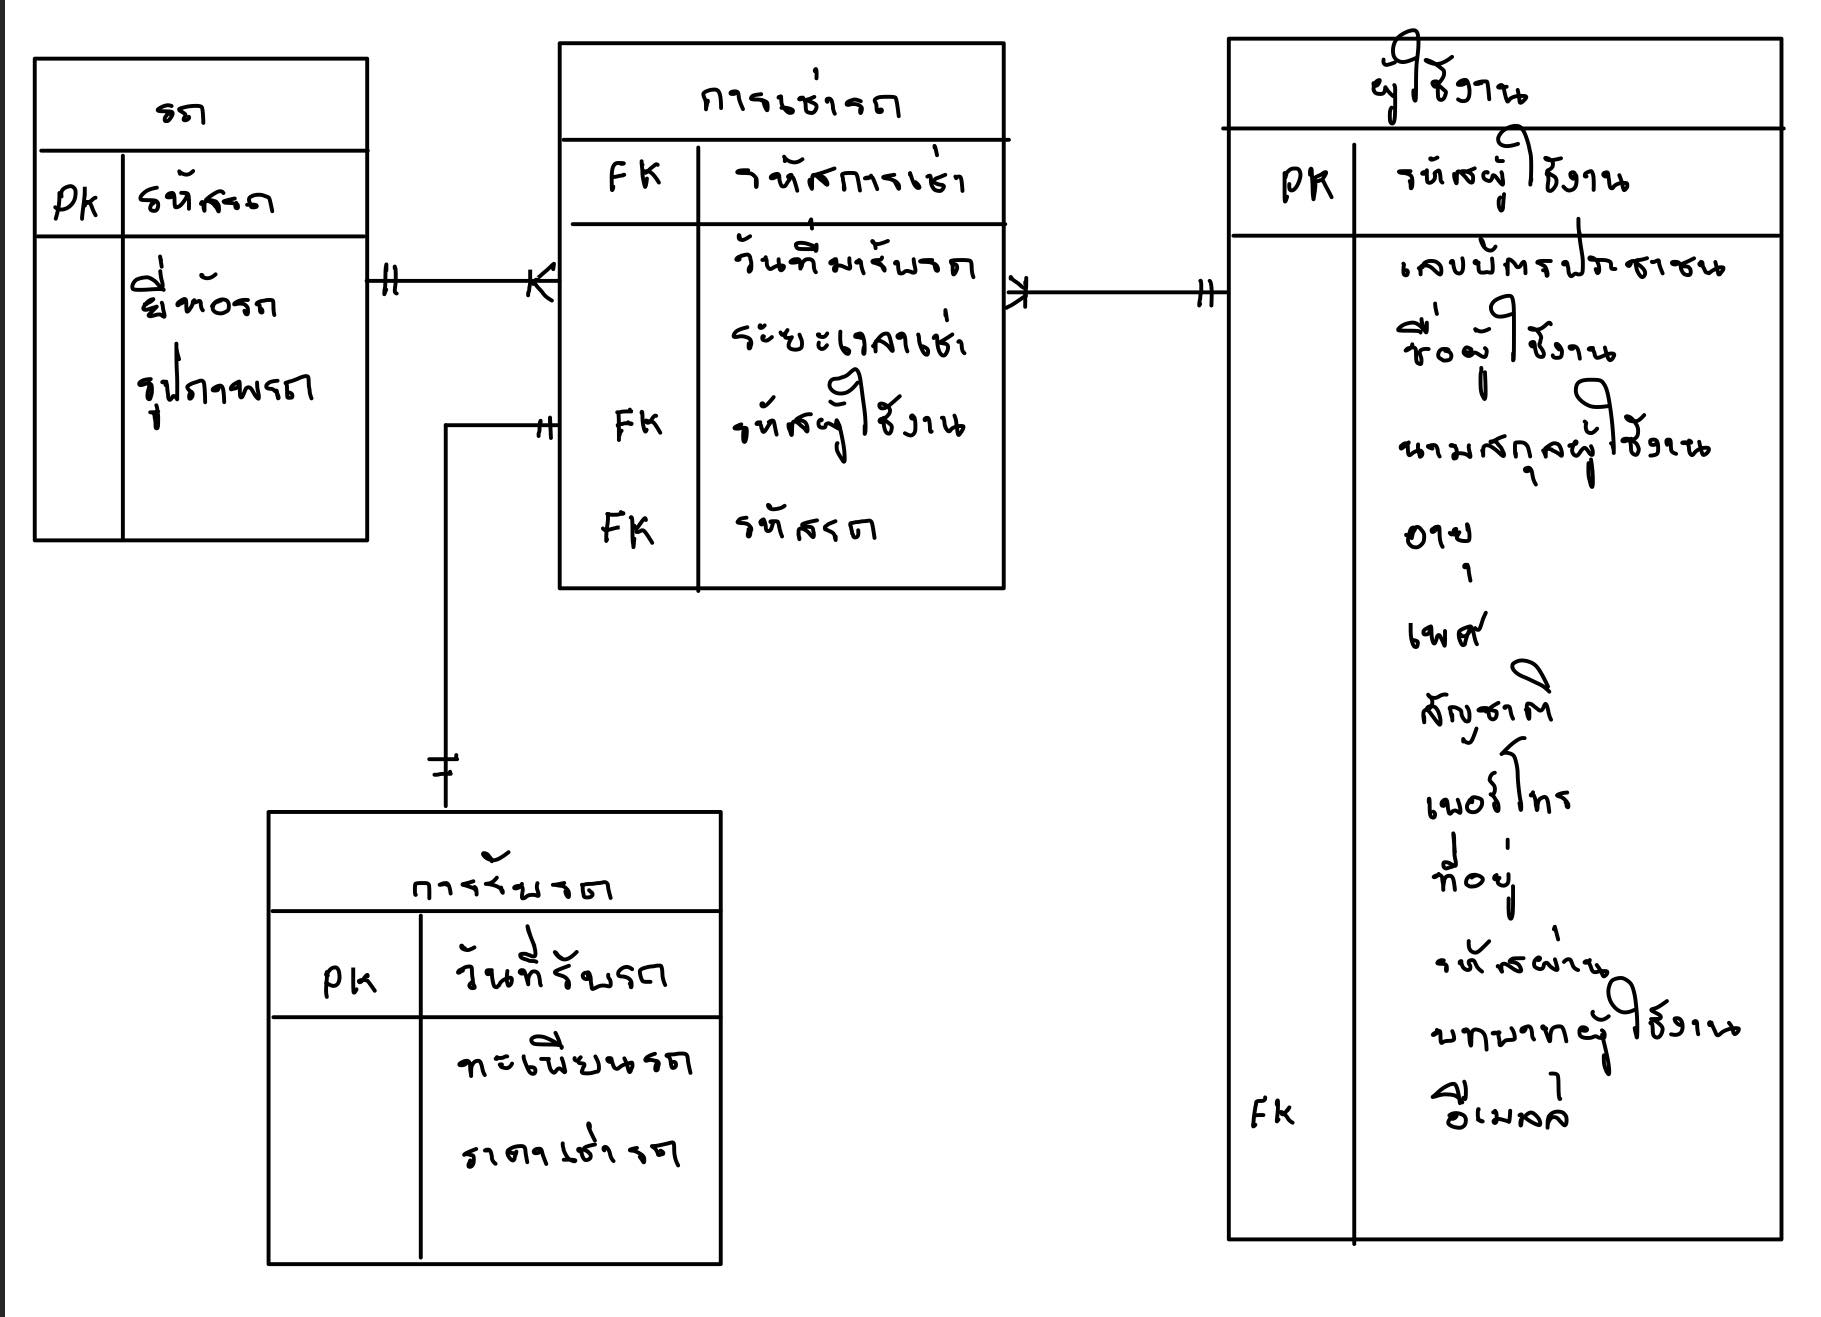 รถ
PK รหัสรถ
ยี่ห้อรถ
รูปภาพรถ
การเช่ารถ
FK รหัสการเช่า
วันที่มารับรถ
ระยะเวลาเช่า
FK รหัสผู้ใช้งาน
FK รหัสรถ
ผู้ใช้งาน
PK รหัสผู้ใช้งาน
เลขบัตรประชาชน
ชื่อผู้ใช้งาน
นามสกุลผู้ใช้งาน
อายุ
เพศ
สัญชาติ
เบอร์โทร
ที่อยู่
รหัสผ่าน
บทบาทผู้ใช้งาน
FK อีเมลล์
การรับรถ
PK วันที่รับรถ
ทะเบียนรถ
ราคาเช่ารถ